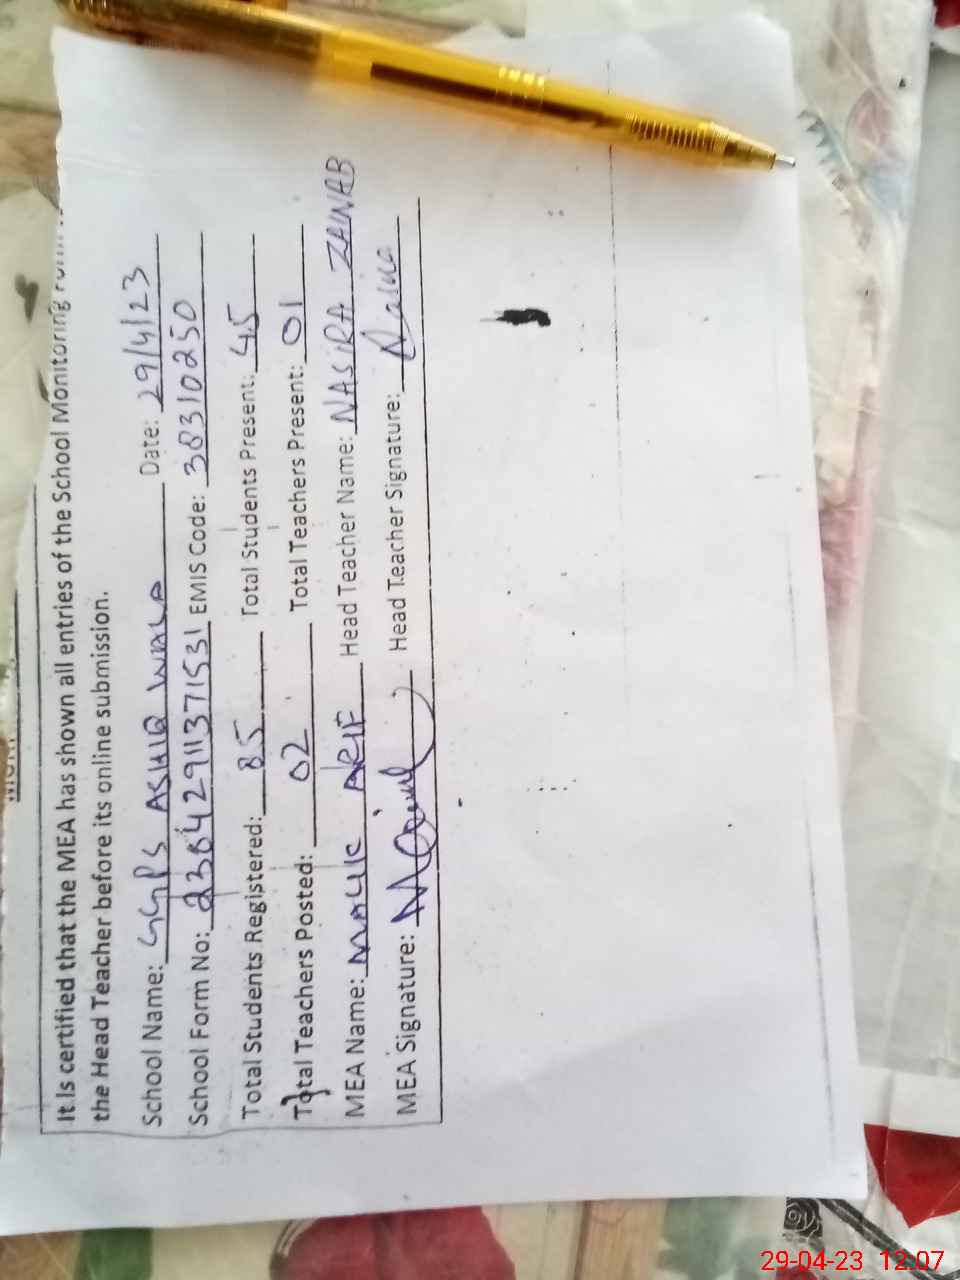 It Is certified that the MEA has shown all entries of the School Monitoring
the Head Teacher before its online submission.
School Name: GGPS ASHIQ WALA Date: 29/4/23
School Form No: EMIS Code: 38310250
Total Students Registered: 85 Total Students Present: 45
Total Teachers Posted: 02 Total Teachers Present: 01
MEA Name: MALIK ARIF Head Teacher Name: NASIRA ZAINAB
MEA Signature: Head Teacher Signature:
29-04-23 12:07